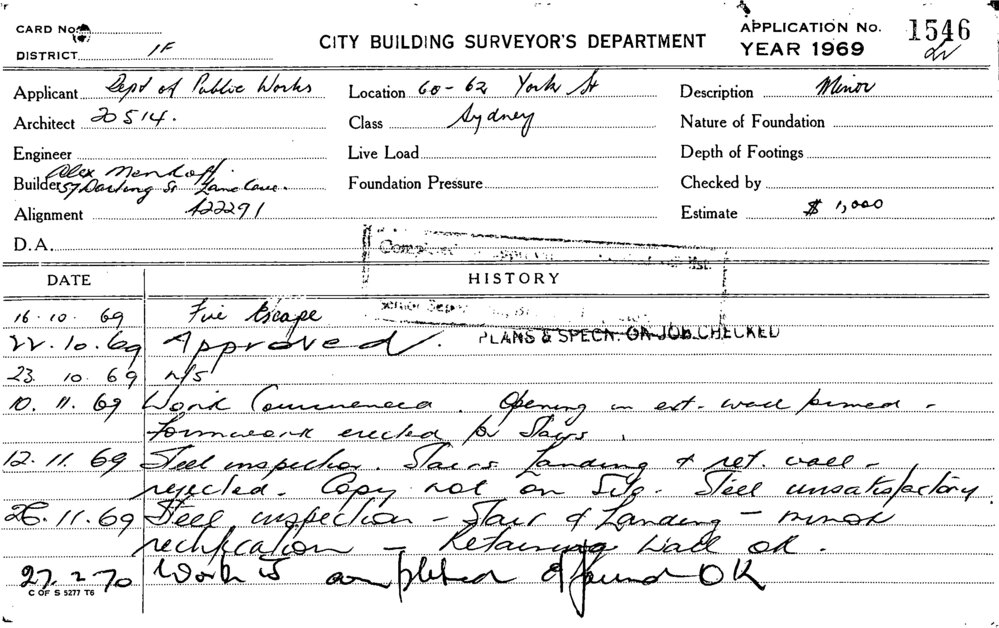 CARD No.
DISTRICT 1F
CITY BUILDING SURVEYOR'S DEPARTMENT
APPLICATION No. 1546
YEAR 1969
Applicant Dept of Public Works
Location 60-62 York St
Description Minor
Architect 20514.
Class Sydney
Nature of Foundation
Engineer
Live Load
Depth of Footings
Builder Alex
57 Darling St Lane Cove.
Foundation Pressure
Checked by
Alignment A22291
Estimate $ 1,000
D.A.
DATE HISTORY
16.10.69 Fire Escape
22.10.69 Approved.
PLANS & SPECN. ON JOB CHECKED
23.10.69 n/s
10.11.69 Work Commenced. Opening in ext. wall formed -
formwork erected for Stairs.
12.11.69 Steel inspection. Stairs Landing & ret. wall -
rejected. Copy not on Site. Steel unsatisfactory.
26.11.69 Steel inspection - Stair & Landing - minor
rectification - Retaining Wall OK.
27.2.70 Work is completed & found OK
C OF S 5277 T6